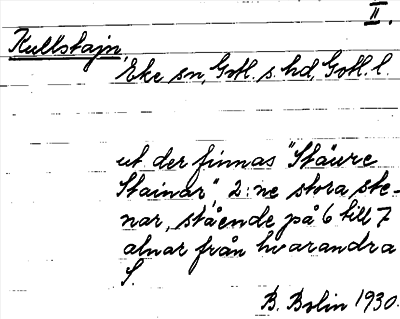 II.
Kullstajn,
Eke sn, Gotl. s. hd, Gotl. l.
ut der finnas "Stäure
Stainar", 2:ne stora ste-
nar, stående på 6 till 7
alnar från hvarandra
S.
B. Bolin 1930.